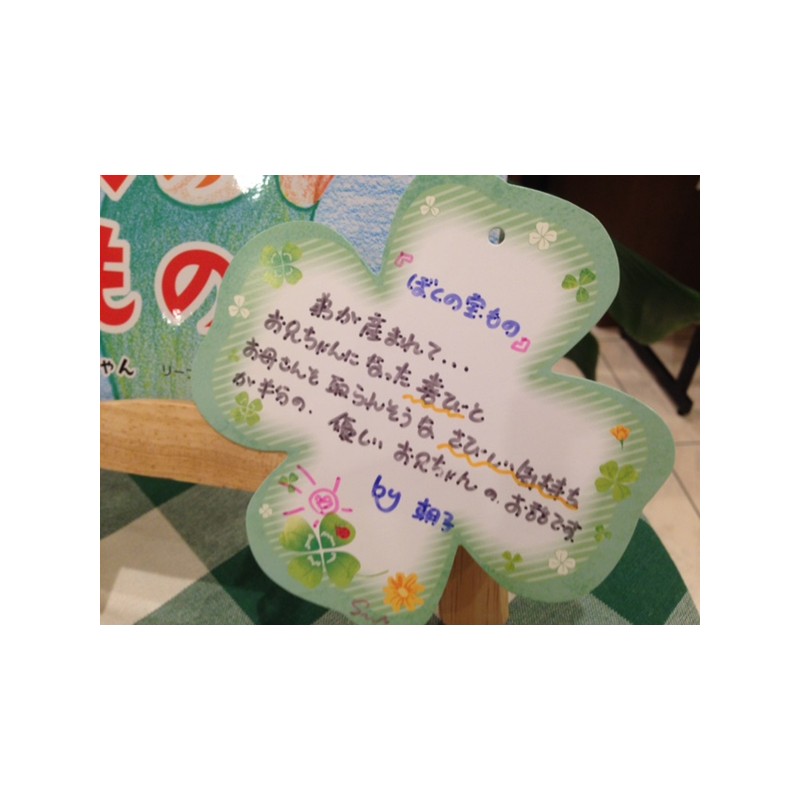 もの
『ぼくの宝もの』
弟が産まれて...
お兄ちゃんになった喜びと
お母さんを取られそうなさびしい気持ち
が半分の、優しいお兄ちゃんの、お話です
by 朝子